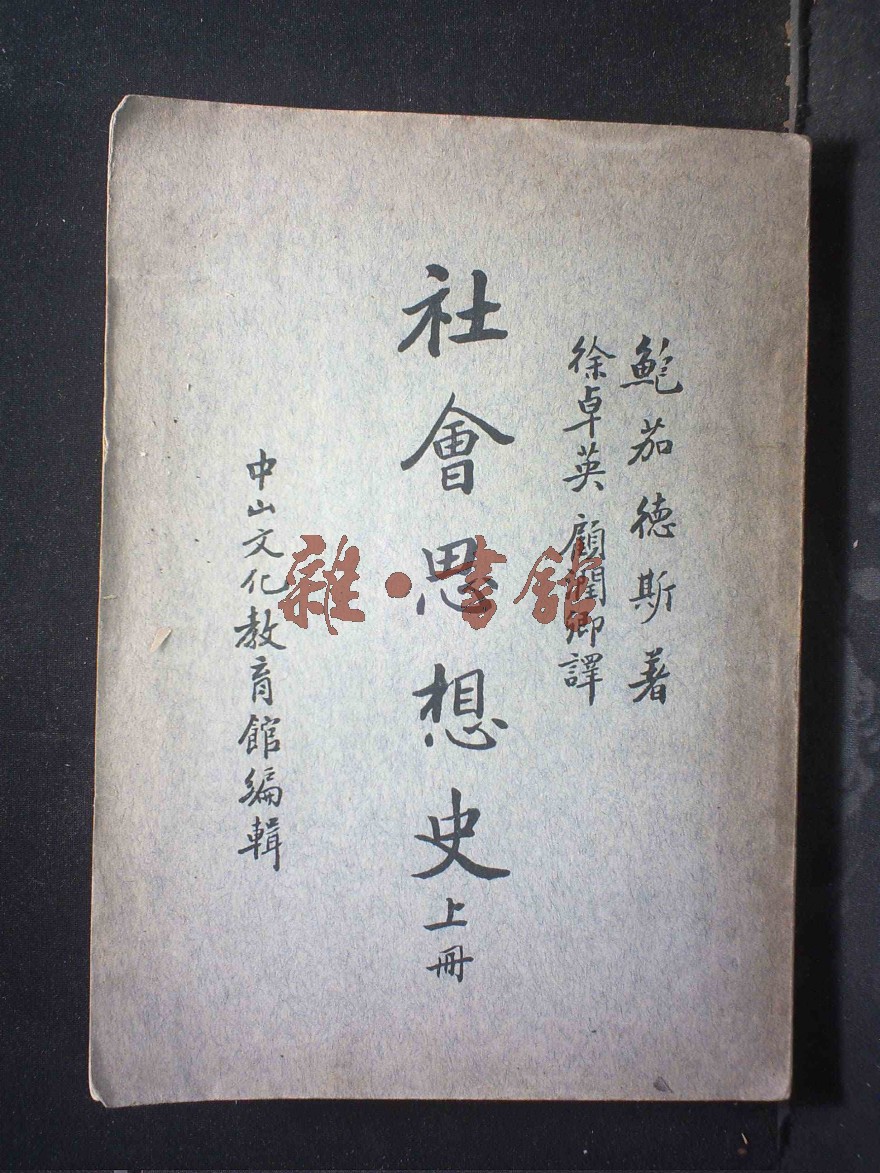 鮑茄德斯著
徐卓英 顧潤卿譯
社會思想史上冊
中山文化教育館編輯
雜·書館